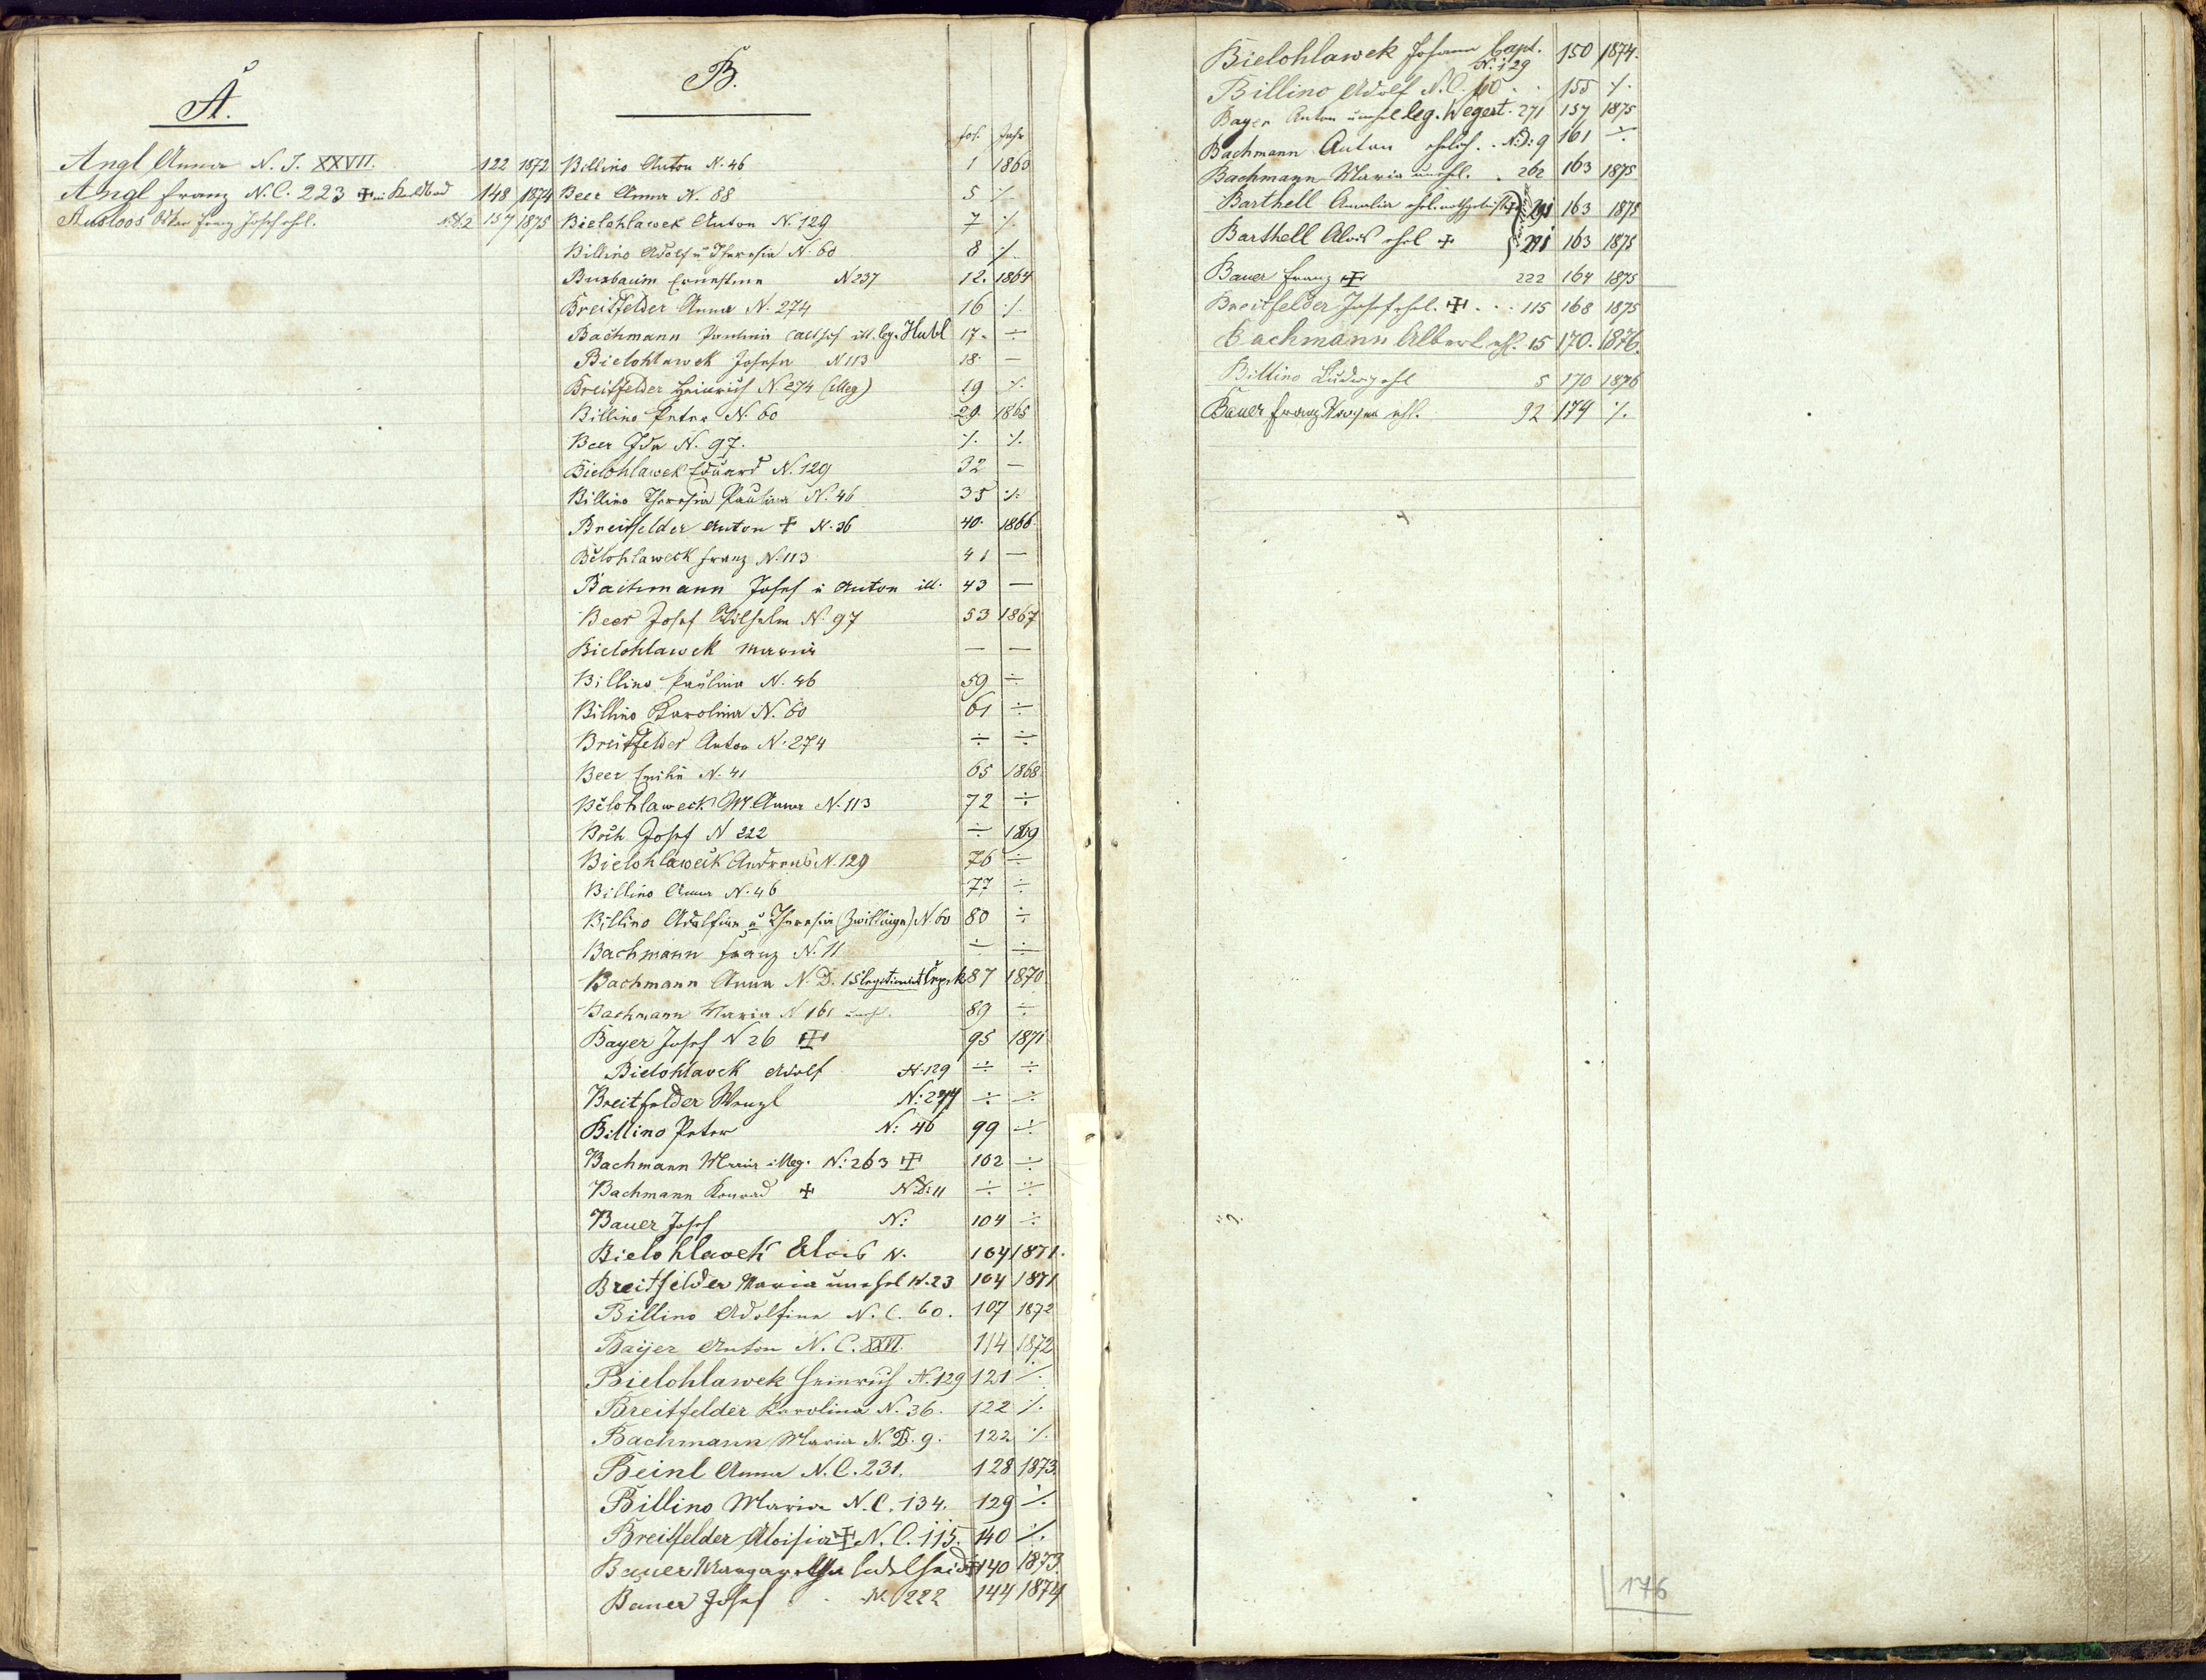 A.
Angl Anna N. J. XXVII. 122 1872
Angl Franz N.C. 223 ✠ 148 1874
Franz Josef ehl. 157 1875
B.
fol. Jahr
Billino Anton N. 46 1 1863
Beer Anna N. 88 5 ⁒
Bielohlawek Anton N. 129 7 ⁒
Billino Adolf u Theresia N. 60 8 ⁒
Busbaum Ernestine N 237 12. 1864
Breitfelder Anna N. 274 16 ⁒
Bachmann Paulina ill. leg. Hubl 17. ÷
Bielohlawek Josefa N 113 18. —
Breitfelder Heinrich N. 274 (illeg) 19 ⁒
Billino Peter N. 60 29 1865
Beer Ida N. 97. ⁒ ⁒
Bielohlawek Eduard N. 129 32 —
Billino Theresia Paulina N. 46 35 ⁒
Breitfelder Anton ✠ N. 36 40. 1866
Bělohlaweck Franz N. 113 41 —
Bachmann Josef u Anton ill. 43 —
Beer Josef Wilhelm N. 97 53 1867
Bielohlawek Maria — —
Billino Paulina N. 46 59 ÷
Billino Karolina N. 60 61 ÷
Breitfelder Anton N. 274 ÷ ÷
Beer Emilie N. 41 65 1868
Bělohlaweck M. Anna N. 113 72 ÷
Josef N 222 ÷ 1869
Bielohlaweck Andreas N. 129 76 ÷
Billino Anna N. 46 77 ÷
Billino Adolfine u Theresia (Zwillinge) N. 60 80 ÷
Bachmann Franz N. 11 ÷ ÷
Bachmann Anna N. D. 15 legitimirt 87 1870
Bachmann Maria N 161 unehl. 89 ÷
Bayer Josef N 26 ✠ 95 1871
Bielohlavek Adolf N. 129 ÷ ÷
Breitfelder Wenzl N: 274 ÷ ÷
Billino Peter N: 46 99 ÷
Bachmann Maria illeg. N: 263 ✠ 102 ÷
Bachmann Konrad ✠ N.D: 11 ÷ ÷
Bauer Josef N: 104 ÷
Bielohlavek Alois N. 104 1871.
Breitfelder Maria unehel N. 23 104 1871
Billino Adolfine N. C. 60. 107 1872
Baijer Anton N. C. XXVI. 114 1872
Bielohlawek Heinrich N. 129 121 ⁒
Breitfelder Karolina N. 36. 122 ⁒
Bachmann Maria N. D. 9. 122 ⁒
Beinl Anna N. C. 231. 128 1873.
Billino Maria N. C. 134. 129 ⁒
Breitfelder Aloisia ✠ N. C. 115. 140 ⁒
Bauer Margaretha Adelheid 140 1873.
Bauer Josef N. 222 144 1874
Bielohlawek Johann Capt. N. 129 150 1874.
Billino Adolf N. C. 60 . . 155 ⁒
Bayer Anton unehel leg. Wegert. 271 157 1875
Bachmann Anton ehelich. . N:D: 9 161 ÷
Bachmann Maria unehl. . 262 163 1875
Barthell Amalia ehel. nothgetauft 291 163 1875
Barthell Alois ehel ✠ 291 163 1875
Bauer Franz ✠ 222 164 1875
Breitfelder Josef ehel. ✠ . . . 115 168 1875
Bachmann Albert ehl. 15 170. 1876.
Billino Ludwig ehl 5 170 1876
Bauer Franz ehl. 92 174 ⁒
176